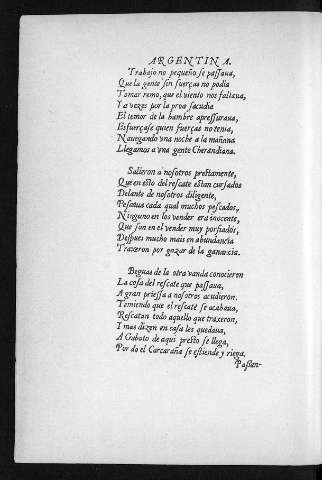 ARGENTINA.
Trabajo no pequeño se passaua,
Que la gente sin fuerças no podia
Tomar remo, que el viento nos faltaua,
Y a vezes por la proa sacudia
El temor de la hambre apressuraua,
Esfuerçase quien fuerças no tenia,
Nauegando vna noche a la mañana
Llegamos a vna gente Cherandiana.
Salieron a nosotros prestamente,
Que en esto del rescate estan cursados
Delante de nosotros diligente,
Pescaua cada qual muchos pescados,
Ninguno en los vender era inocente,
Que son en el vender muy porfiados,
Despues mucho mais en abundancia
Traxeron por gozar de la ganancia.
Beguas de la otra vanda conocieron
La cosa del rescate que passaua,
A gran priessa a nosotros acudieron.
Temiendo que el rescaté se acabaua,
Rescatan todo aquello que traxeron,
Y mas dizen en casa les quedaua,
A Gaboto de aqui presto se llega,
Por do el Carcaraña se estiende y riega.
Passen-